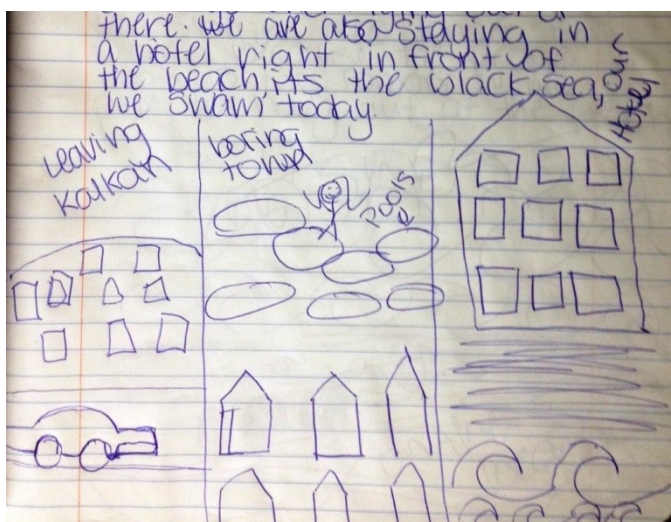 there. we are also staying in
a hotel right in front of
the beach, its the black sea,
we swam today.
our
Hotel
Leaving
Kalkan
boring
town
pools